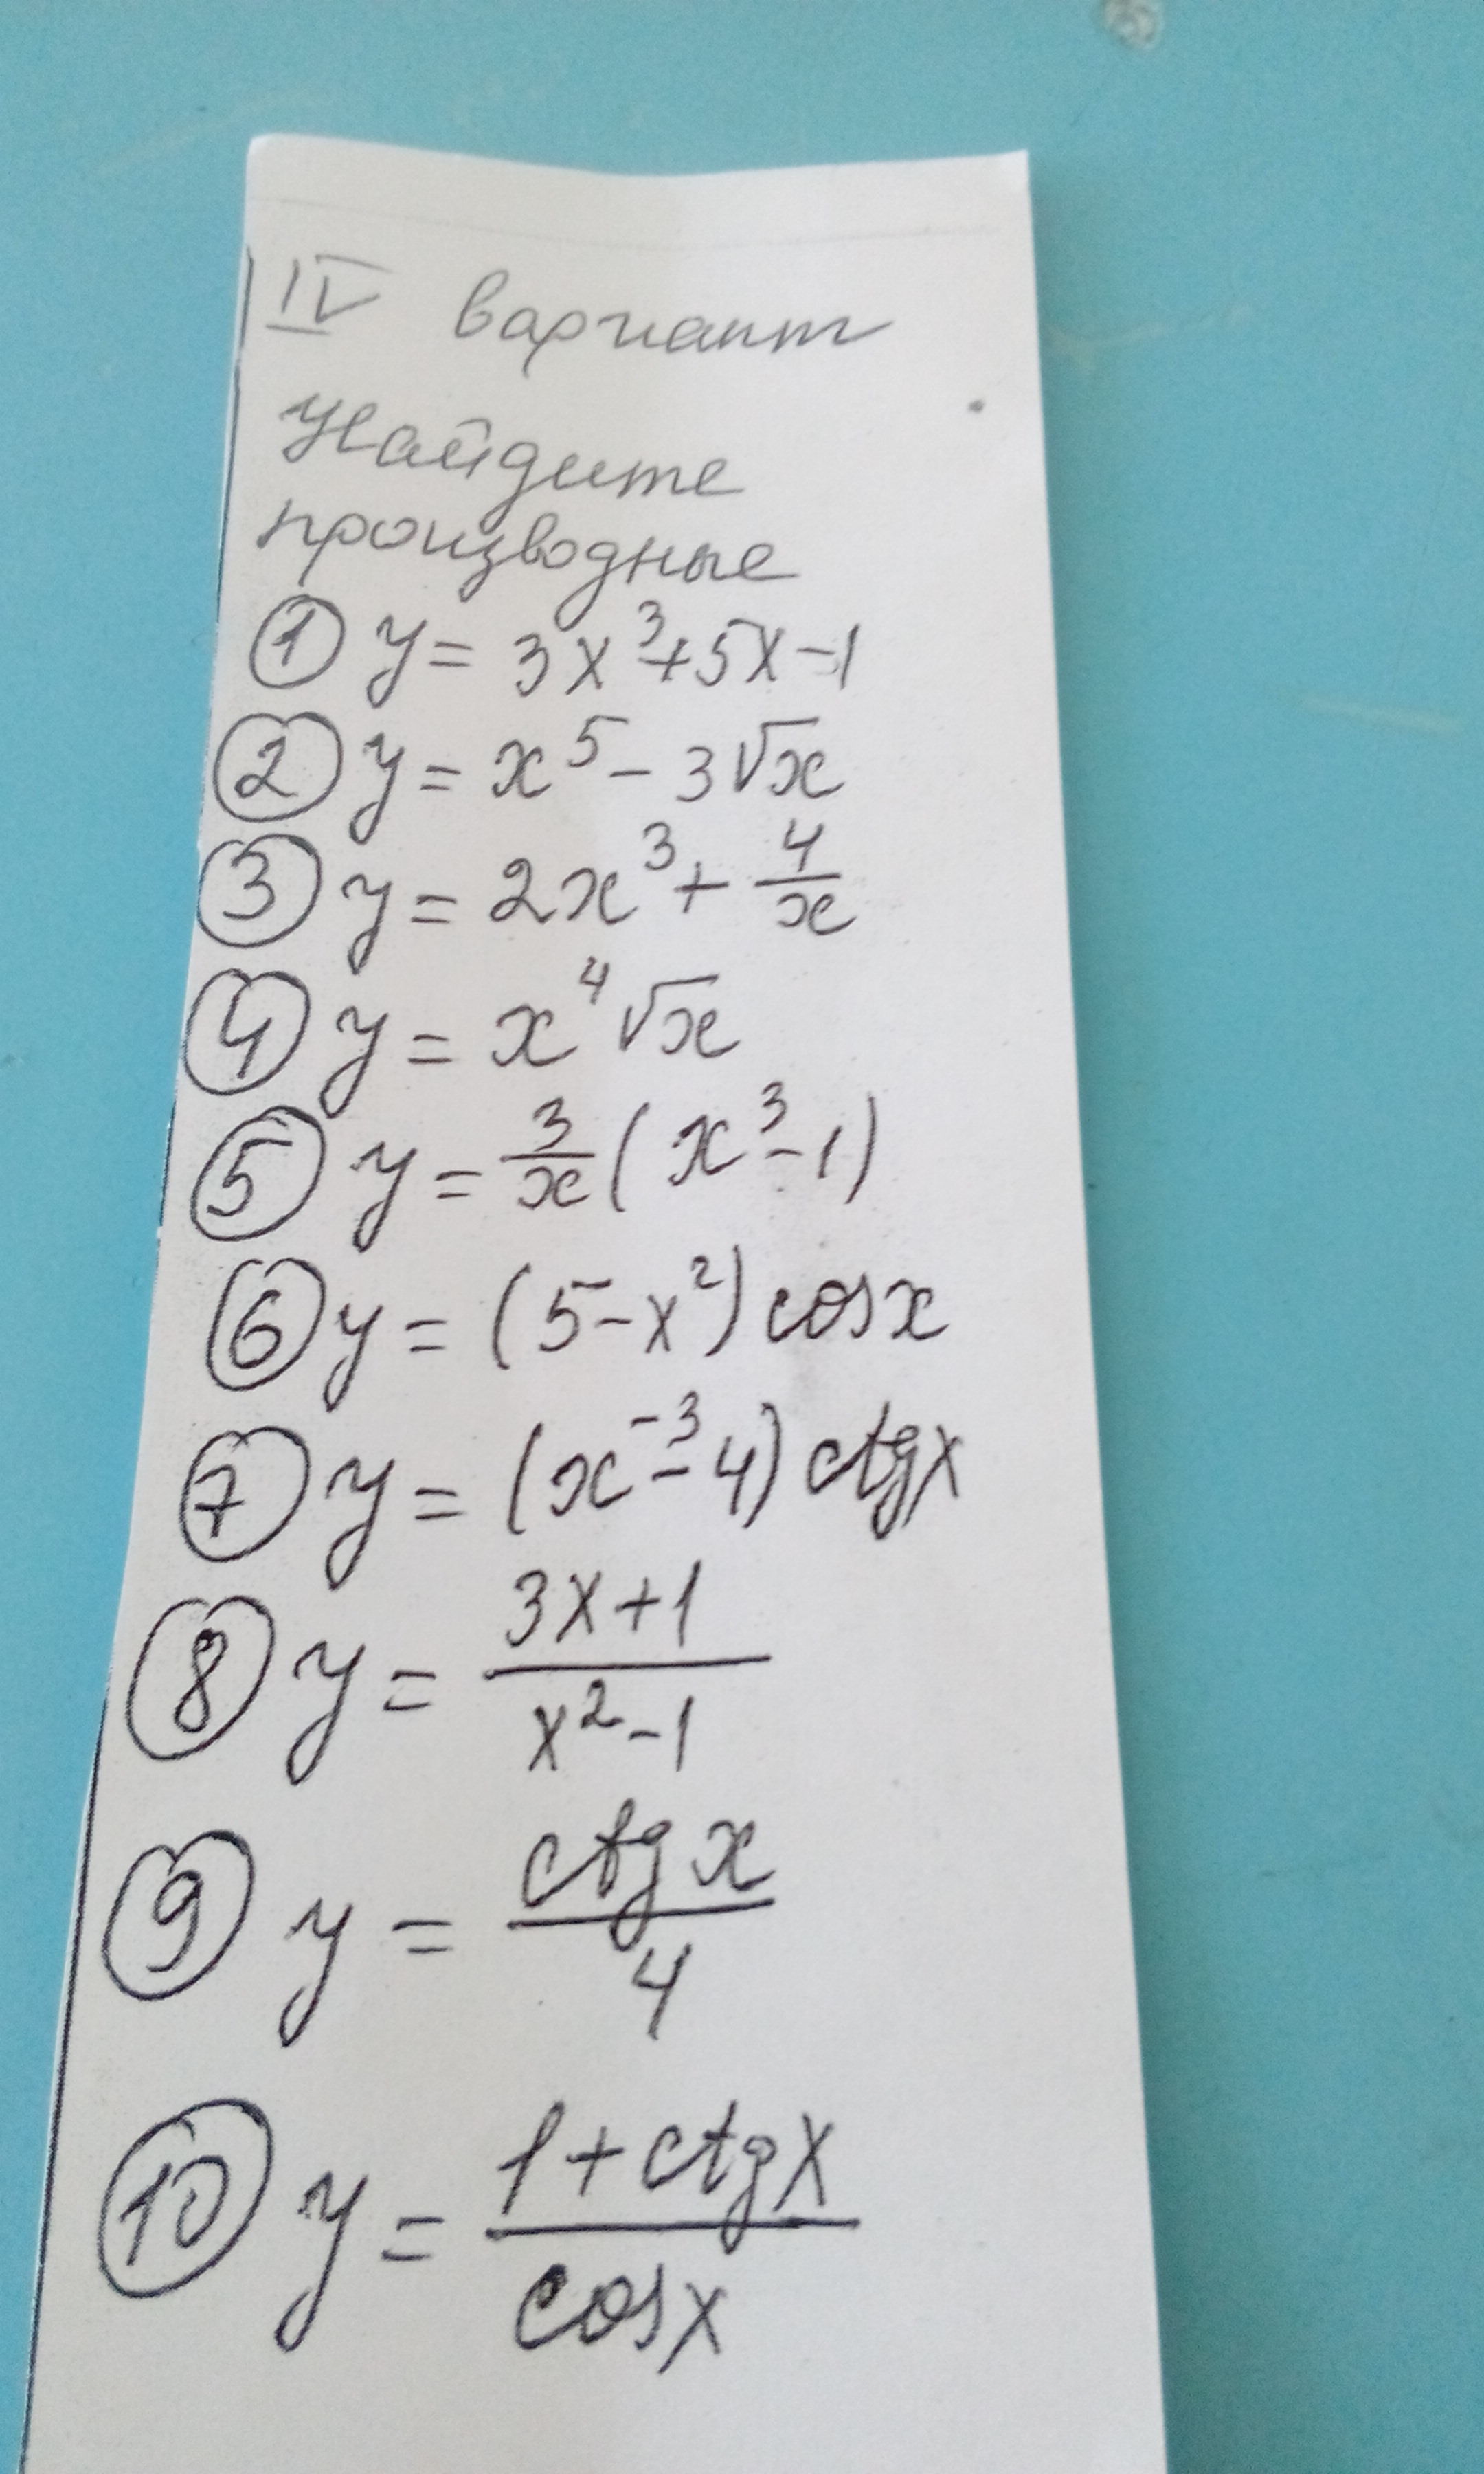 IV вариант
Найдите
производные
① y = 3x³+5x-1
② y = x⁵ - 3√x
③ y = 2x³ + 4/x
④ y = x⁴√x
⑤ y = 3/x (x³-1)
⑥ y = (5-x²) cosx
⑦ y = (x⁻³-4) ctgx
⑧ y = (3x+1)/(x²-1)
⑨ y = ctg x/4
⑩ y = (1+ctgx)/cosx